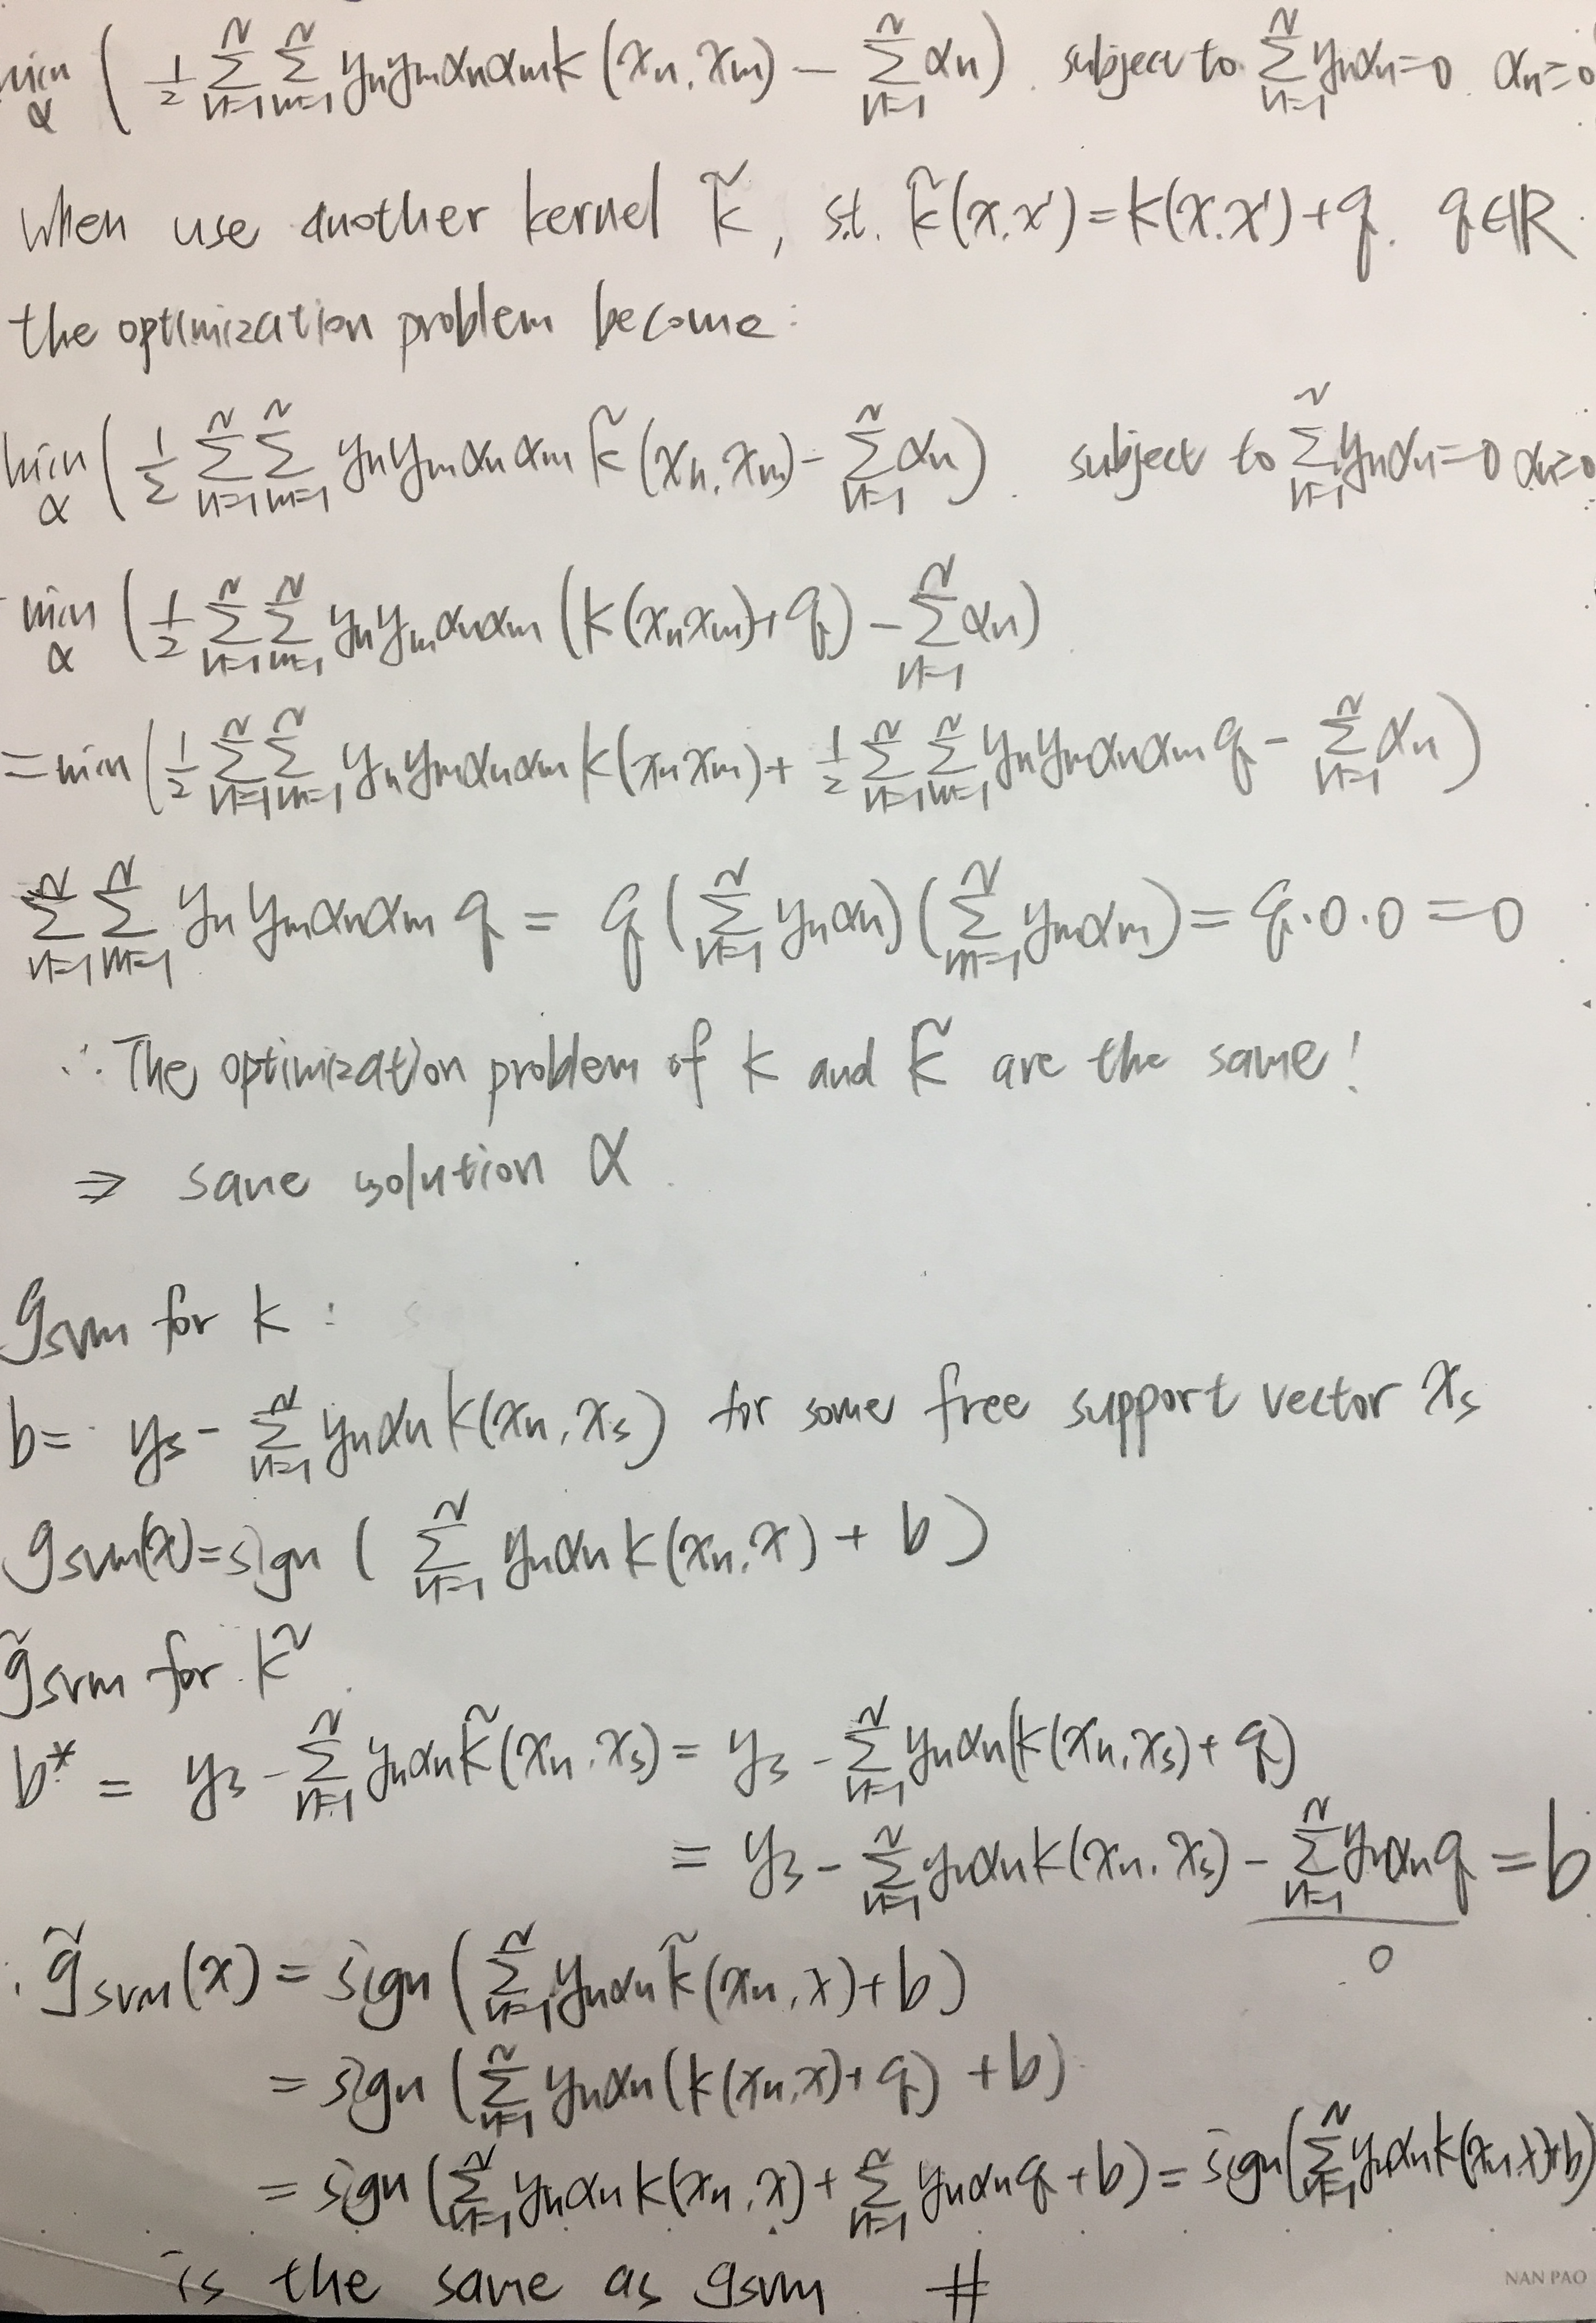 min_α ( 1/2 Σ_{n=1}^N Σ_{m=1}^N y_n y_m α_n α_m k(x_n, x_m) − Σ_{n=1}^N α_n ). subject to Σ_{n=1}^N y_n α_n = 0. α_n ≥ 0
when use another kernel k̃, s.t. k̃(x.x') = k(x.x') + q. q∈ℝ
the optimization problem become:
min_α ( 1/2 Σ_{n=1}^N Σ_{m=1}^N y_n y_m α_n α_m k̃(x_n, x_m) − Σ_{n=1}^N α_n ). subject to Σ_{n=1}^N y_n α_n = 0 α_n ≥ 0
min_α ( 1/2 Σ_{n=1}^N Σ_{m=1}^N y_n y_m α_n α_m (k(x_n x_m) + q) − Σ_{n=1}^N α_n )
= min ( 1/2 Σ_{n=1}^N Σ_{m=1}^N y_n y_m α_n α_m k(x_n x_m) + 1/2 Σ_{n=1}^N Σ_{m=1}^N y_n y_m α_n α_m q − Σ_{n=1}^N α_n )
Σ_{n=1}^N Σ_{m=1}^N y_n y_m α_n α_m q = q (Σ_{n=1}^N y_n α_n)(Σ_{m=1}^N y_m α_m) = q·0·0 = 0
∴ The optimization problem of k and k̃ are the same!
⇒ same solution α.
g_svm for k:
b = y_s − Σ_{n=1}^N y_n α_n k(x_n, x_s) for some free support vector x_s
g_svm(x) = sign ( Σ_{n=1}^N y_n α_n k(x_n, x) + b )
g̃_svm for k̃
b* = y_s − Σ_{n=1}^N y_n α_n k̃(x_n, x_s) = y_s − Σ_{n=1}^N y_n α_n (k(x_n, x_s) + q)
= y_s − Σ_{n=1}^N y_n α_n k(x_n, x_s) − Σ_{n=1}^N y_n α_n q = b
0
∴ g̃_svm(x) = sign ( Σ_{n=1}^N y_n α_n k̃(x_n, x) + b )
= sign ( Σ_{n=1}^N y_n α_n (k(x_n, x) + q) + b )
= sign ( Σ_{n=1}^N y_n α_n k(x_n, x) + Σ_{n=1}^N y_n α_n q + b ) = sign ( Σ_{n=1}^N y_n α_n k(x_n, x) + b )
is the same as g_svm #
NAN PAO